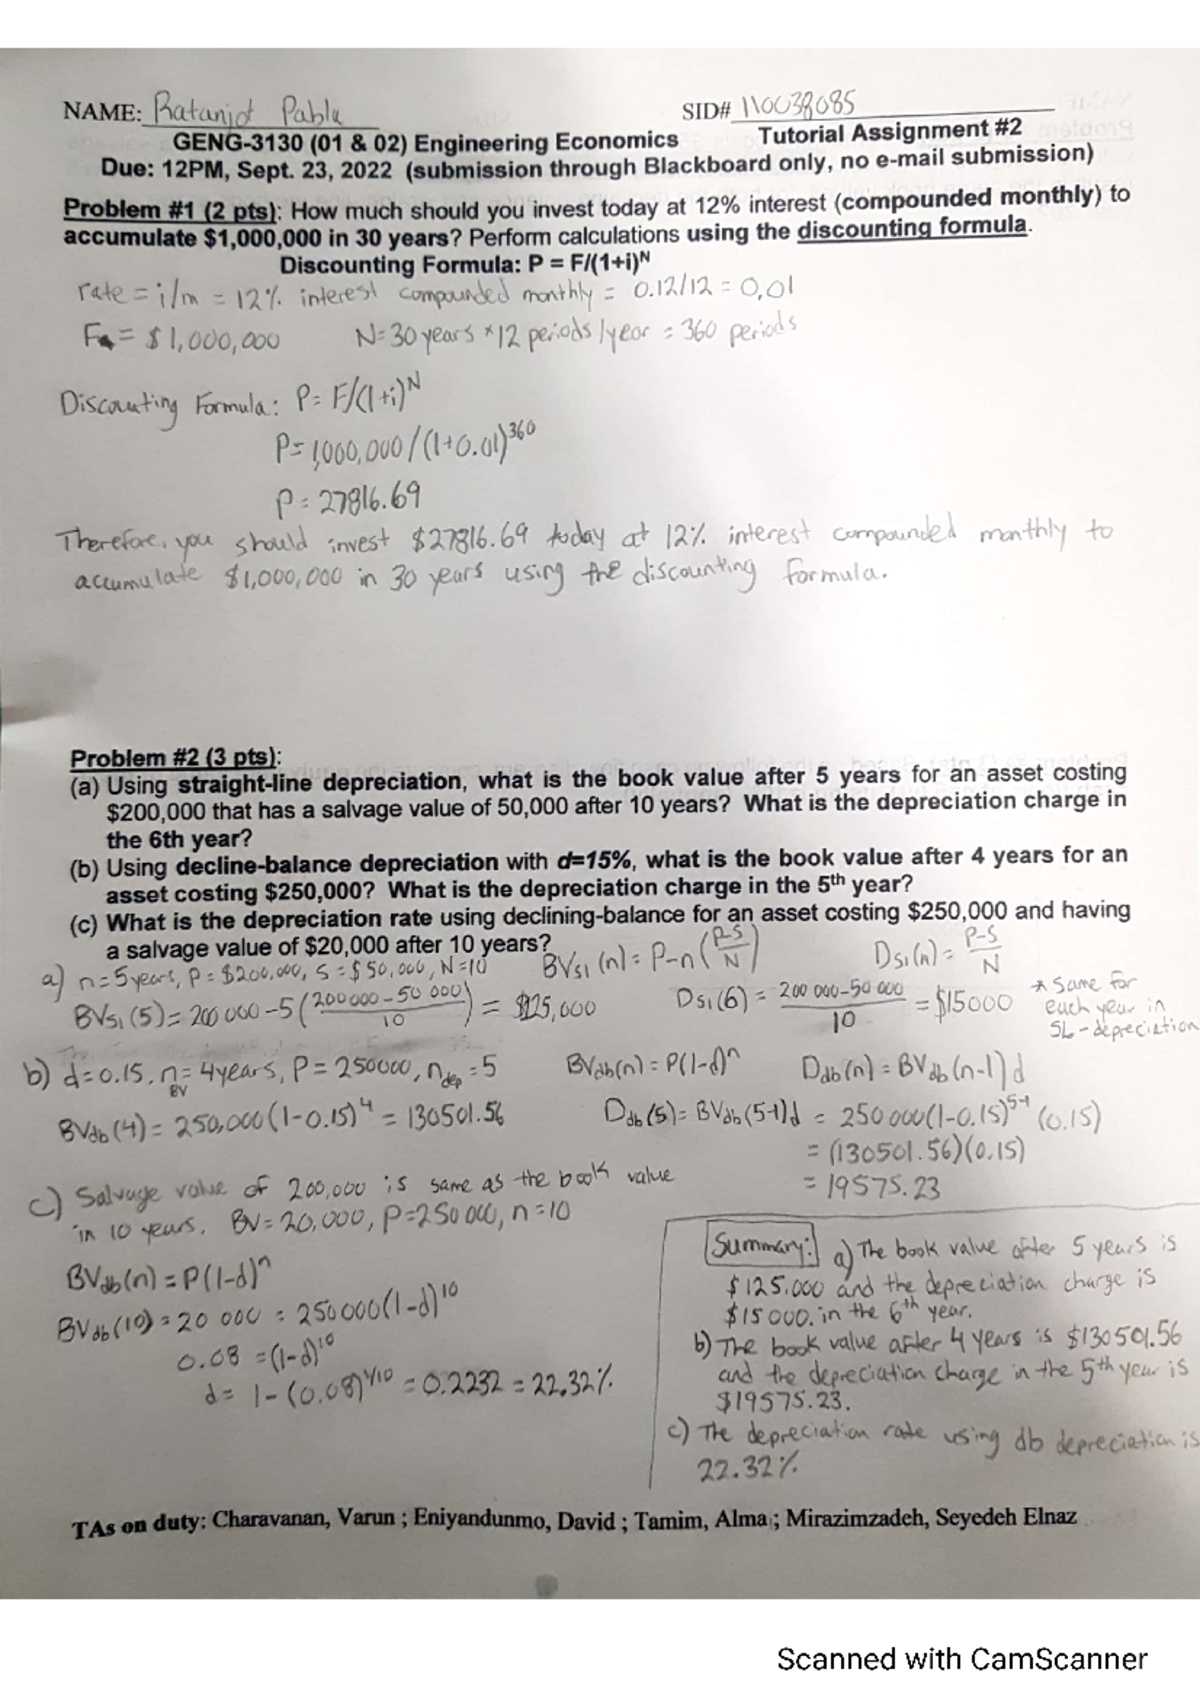 NAME: Ratanjot Pabla SID# 110038085
GENG-3130 (01 & 02) Engineering Economics Tutorial Assignment #2
Due: 12PM, Sept. 23, 2022 (submission through Blackboard only, no e-mail submission)
Problem #1 (2 pts): How much should you invest today at 12% interest (compounded monthly) to
accumulate $1,000,000 in 30 years? Perform calculations using the discounting formula.
Discounting Formula: P = F/(1+i)^N
rate = i/m = 12% interest compounded monthly = 0.12/12 = 0.01
F = $1,000,000 N=30 years *12 periods/year = 360 periods
Discounting Formula: P= F/(1+i)^N
P= 1,000,000/(1+0.01)^360
P= 27816.69
Therefore, you should invest $27816.69 today at 12% interest compounded monthly to
accumulate $1,000,000 in 30 years using the discounting formula.
Problem #2 (3 pts):
(a) Using straight-line depreciation, what is the book value after 5 years for an asset costing
$200,000 that has a salvage value of 50,000 after 10 years? What is the depreciation charge in
the 6th year?
(b) Using decline-balance depreciation with d=15%, what is the book value after 4 years for an
asset costing $250,000? What is the depreciation charge in the 5th year?
(c) What is the depreciation rate using declining-balance for an asset costing $250,000 and having
a salvage value of $20,000 after 10 years?
a) n=5years, P=$200,000, S=$50,000, N=10 BVsl(n)= P-n(P-S/N) Dsl(n)= P-S/N
BVsl(5)= 200 000-5(200 000-50 000/10) = $125,000 Dsl(6)= 200 000-50 000/10 = $15000 * Same for
each year in
SL-depreciation
b) d=0.15, n BV = 4years, P= 250000, n dep = 5 BVdb(n)= P(1-d)^n Ddb(n)=BVdb(n-1)d
BVdb(4)= 250,000(1-0.15)^4 = 130501.56 Ddb(5)= BVdb(5-1)d = 250 000(1-0.15)^5-1 (0.15)
= (130501.56)(0.15)
= 19575.23
c) Salvage value of 200,000 is same as the book value
in 10 years. BV=20,000, P=250 000, n=10
BVdb(n)=P(1-d)^n
BVdb(10)=20 000 = 250000(1-d)^10
0.08 =(1-d)^10
d= 1-(0.08)^1/10 = 0.2232 = 22.32%
Summary: a) The book value after 5 years is
$125,000 and the depreciation charge is
$15 000. in the 6th year.
b) The book value after 4 years is $130501.56
and the depreciation charge in the 5th year is
$19575.23.
c) The depreciation rate using db depreciation is
22.32%
TAs on duty: Charavanan, Varun ; Eniyandunmo, David ; Tamim, Alma ; Mirazimzadeh, Seyedeh Elnaz
Scanned with CamScanner